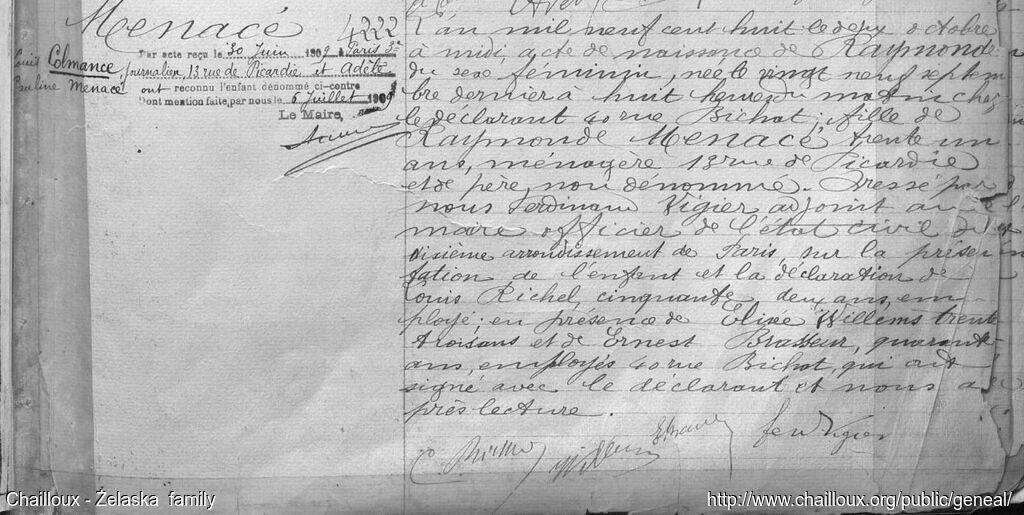 Menacé
4222
Par acte reçu le 30 Juin 1909 à Paris 3e
Louis Colmance, Journalier, 13 rue de Picardie et Adèle
Pauline Menacé ont reconnu l'enfant dénommé ci-contre
Dont mention faite, par nous le 6 Juillet 1909
Le Maire,
L'an mil neuf cent huit le deux octobre
à midi, acte de naissance de Raymonde
du sexe féminin, née le vingt neuf septem
bre dernier à huit heures du matin chez
le déclarant 40 rue Bichat; fille de
Raymonde Menacé, trente un
ans, ménagère 13 rue de Picardie
et de père, non dénommé. Dressé par
nous Ferdinand Vigier adjoint au
maire officier de l'état civil du
dixième arrondissement de Paris, sur la présen
tation de l'enfant et la déclaration de
Louis Richel, cinquante deux ans, em-
ployé; en présence de Elisée Willems trente
trois ans et de Ernest Brasseur, quarante
ans, employés 40 rue Bichat, qui ont
signé avec le déclarant et nous a
près lecture.
Willems
Ferd Vigier
Chailloux - Żelaska family
http://www.chailloux.org/public/geneal/